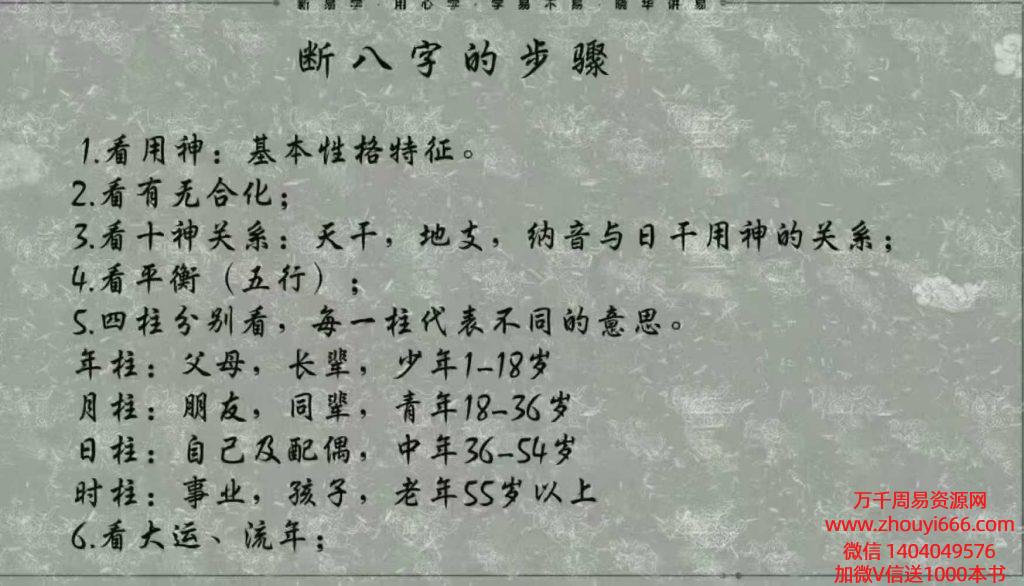 新易学·用心学·学易不易·晓华讲易
断八字的步骤
1.看用神：基本性格特征。
2.看有无合化；
3.看十神关系：天干，地支，纳音与日干用神的关系；
4.看平衡（五行）；
5.四柱分别看，每一柱代表不同的意思。
年柱：父母，长辈，少年1-18岁
月柱：朋友，同辈，青年18-36岁
日柱：自己及配偶，中年36-54岁
时柱：事业，孩子，老年55岁以上
6.看大运、流年；
万千周易资源网
www.zhouyi666.com
微信 1404049576
加微V信送1000本书